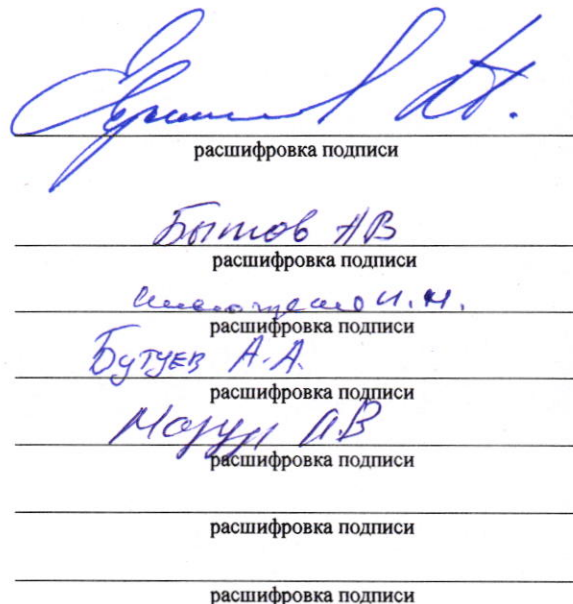 расшифровка подписи
Бытов АВ
расшифровка подписи
И.Н.
расшифровка подписи
Бутуев А.А.
расшифровка подписи
Мазур А.В
расшифровка подписи
расшифровка подписи
расшифровка подписи